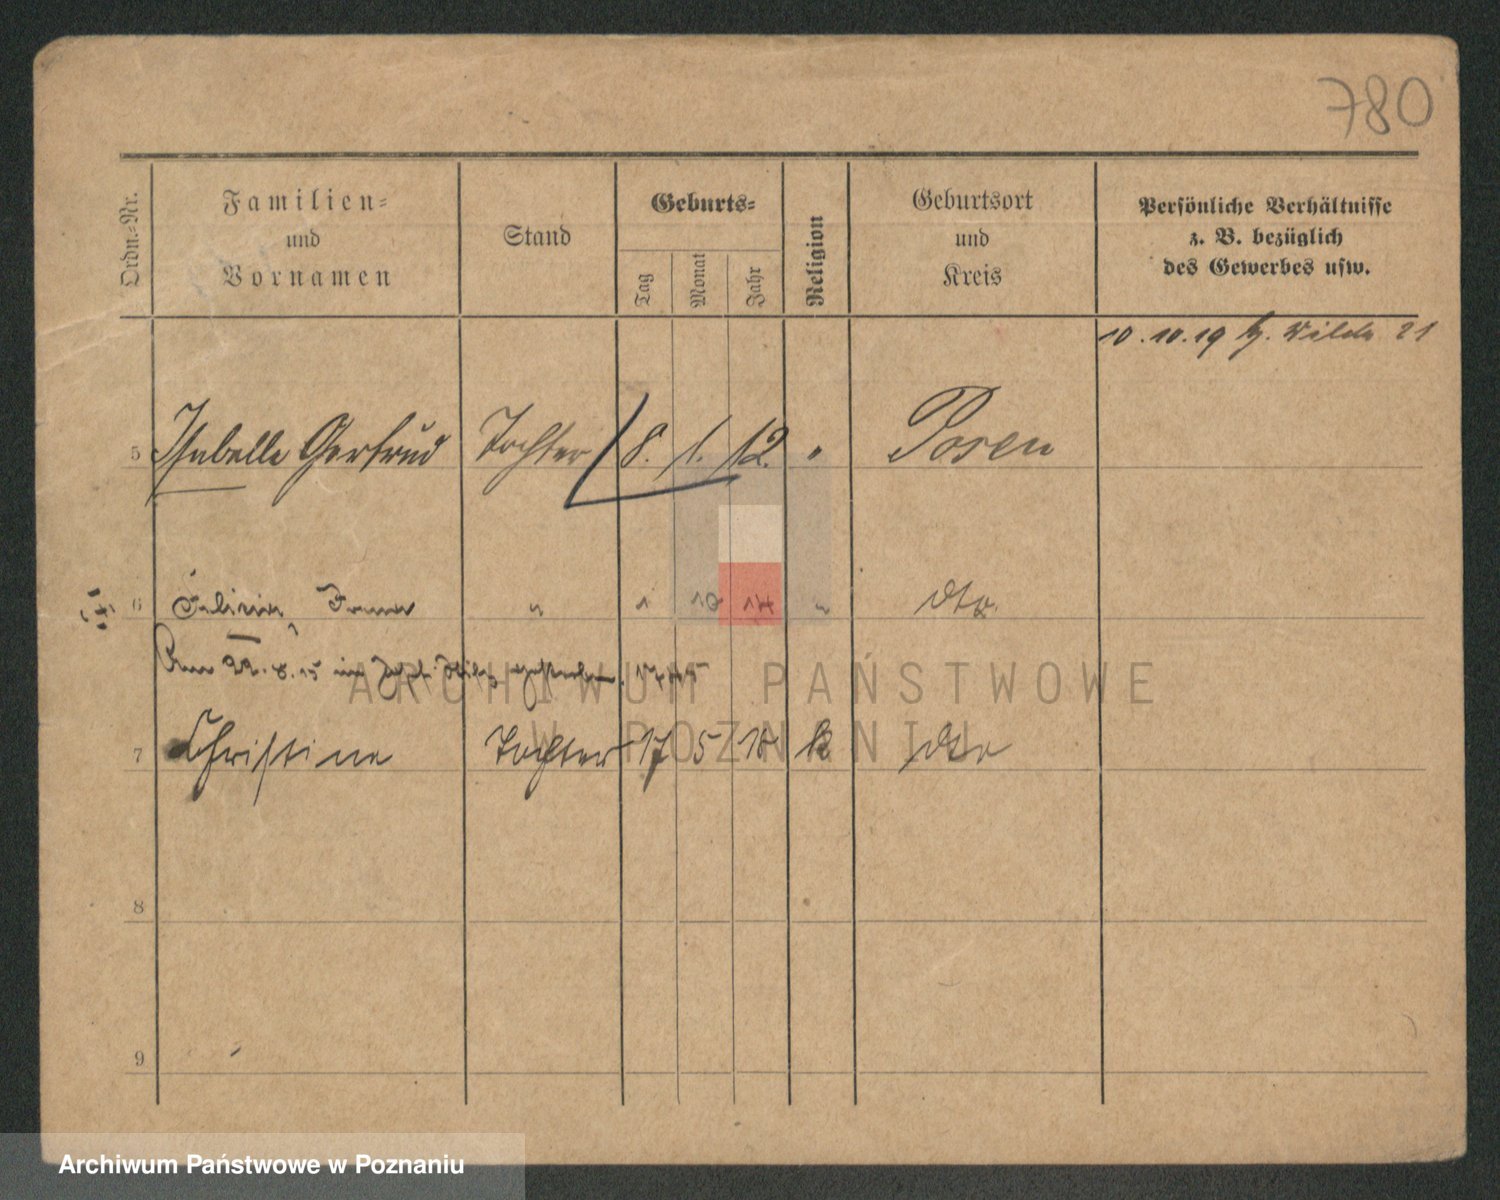 780
Ordn.-Nr.
Familien-
und
Vornamen
Stand
Geburts-
Tag
Monat
Jahr
Religion
Geburtsort
und
Kreis
Persönliche Verhältnisse
z. B. bezüglich
des Gewerbes usw.
10.10.19 Wilda 21
5 Isabelle Gertrud Tochter 8. 1. 12. " Posen
6 " 1 10 14 " dto
Am 22.8.15 gestorben.
7 Christine Tochter 17 5 18 k dto
8
9
ARCHIWUM PAŃSTWOWE
W POZNANIU
Archiwum Państwowe w Poznaniu